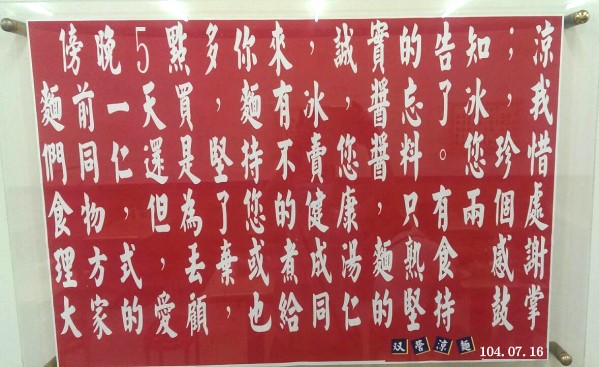 傍晚5點多你來，誠實的告知；涼
麵前一天買，麵有冰，醬忘了冰，我
們同仁還是堅持不賣您醬料。您珍惜
食物，但為了您的健康，只有兩個處
理方式，丟棄或煮成湯麵熟食 感謝
大家的愛顧，也給同仁的堅持 鼓掌
双營涼麵 104.07.16